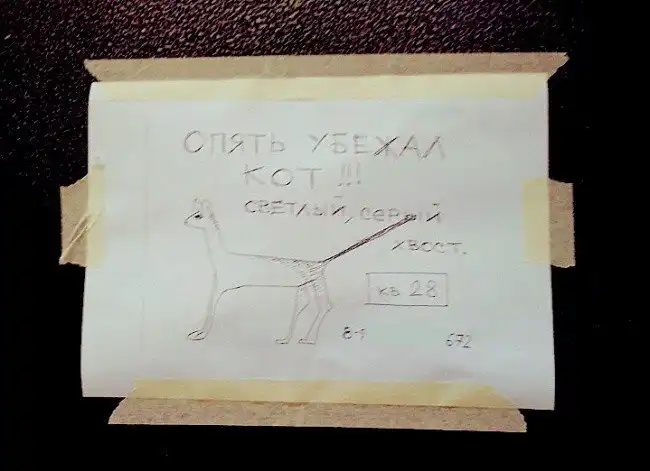 ОПЯТЬ УБЕЖАЛ
КОТ !!!
СВЕТЛЫЙ, СЕРЫЙ
ХВОСТ.
кв 28
8-1 672